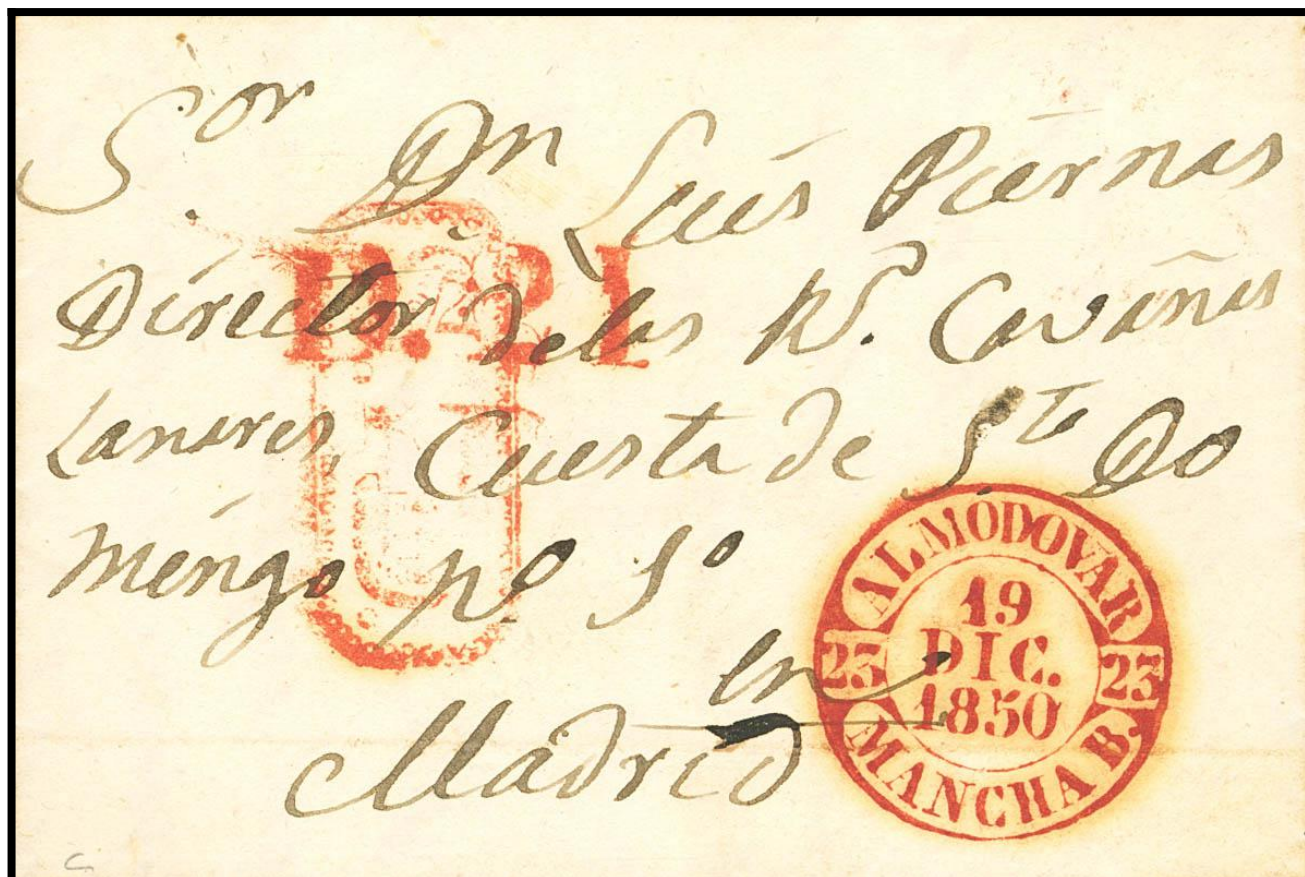 Sor Dn Luis Piernas
Director de las Rs. Cavañas
Lanares, Cuesta de Sto Do
mingo no 5o
en
Madrid
ALMODOVAR
23 19 DIC. 1850 23
MANCHA B.